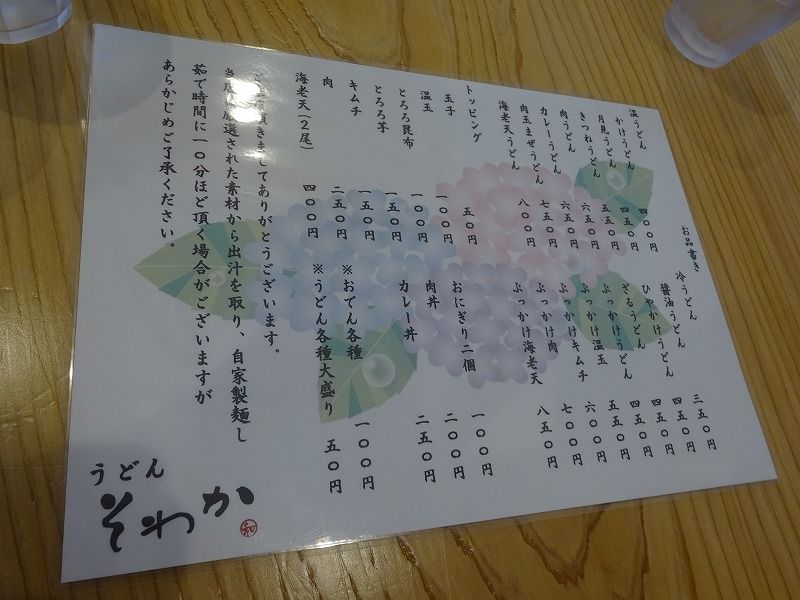 お品書き
温うどん
かけうどん 四〇〇円
月見うどん 四五〇円
きつねうどん 五五〇円
肉うどん 六五〇円
カレーうどん 六五〇円
肉玉まぜうどん 七五〇円
海老天うどん 八〇〇円
冷うどん
醤油うどん 三五〇円
ひやかけうどん 四五〇円
ざるうどん 四五〇円
ぶっかけうどん 四五〇円
ぶっかけ温玉 五五〇円
ぶっかけキムチ 六〇〇円
ぶっかけ肉 七〇〇円
ぶっかけ海老天 八五〇円
トッピング
玉子 五〇円
温玉 一〇〇円
とろろ昆布 一〇〇円
とろろ芋 一五〇円
キムチ 一五〇円
肉 二五〇円
海老天(2尾) 四〇〇円
おにぎり二個 一〇〇円
肉丼 二〇〇円
カレー丼 二五〇円
※おでん各種 一〇〇円
※うどん各種大盛り 五〇円
頂きましてありがとうございます。
厳選された素材から出汁を取り、自家製麺し
茹で時間に一〇分ほど頂く場合がございますが
あらかじめご了承ください。
うどん
そわか
和